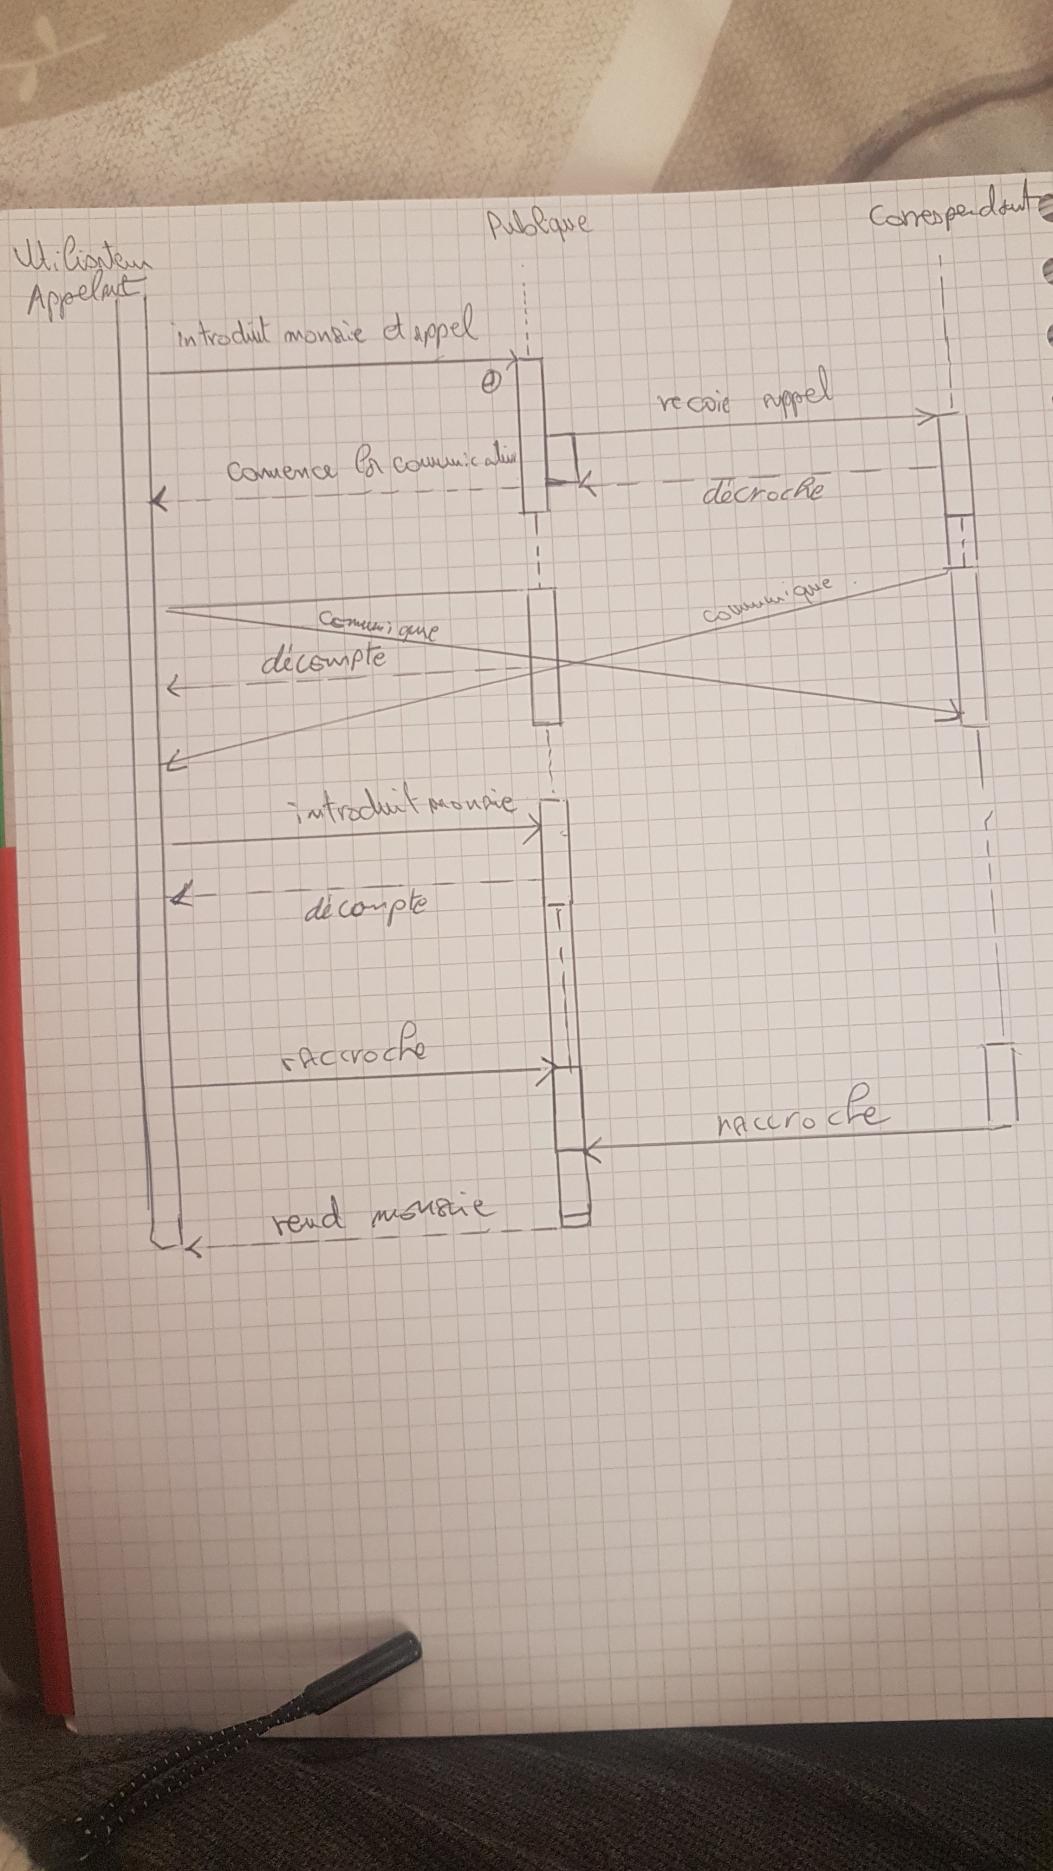 Publique
Correspondant
Utilisateur
Appelant
introduit monaie et appel
recoie appel
comence la communication
décroche
communique
comunique
décompte
introduit monaie
décompte
raccroche
raccroche
rend monaie